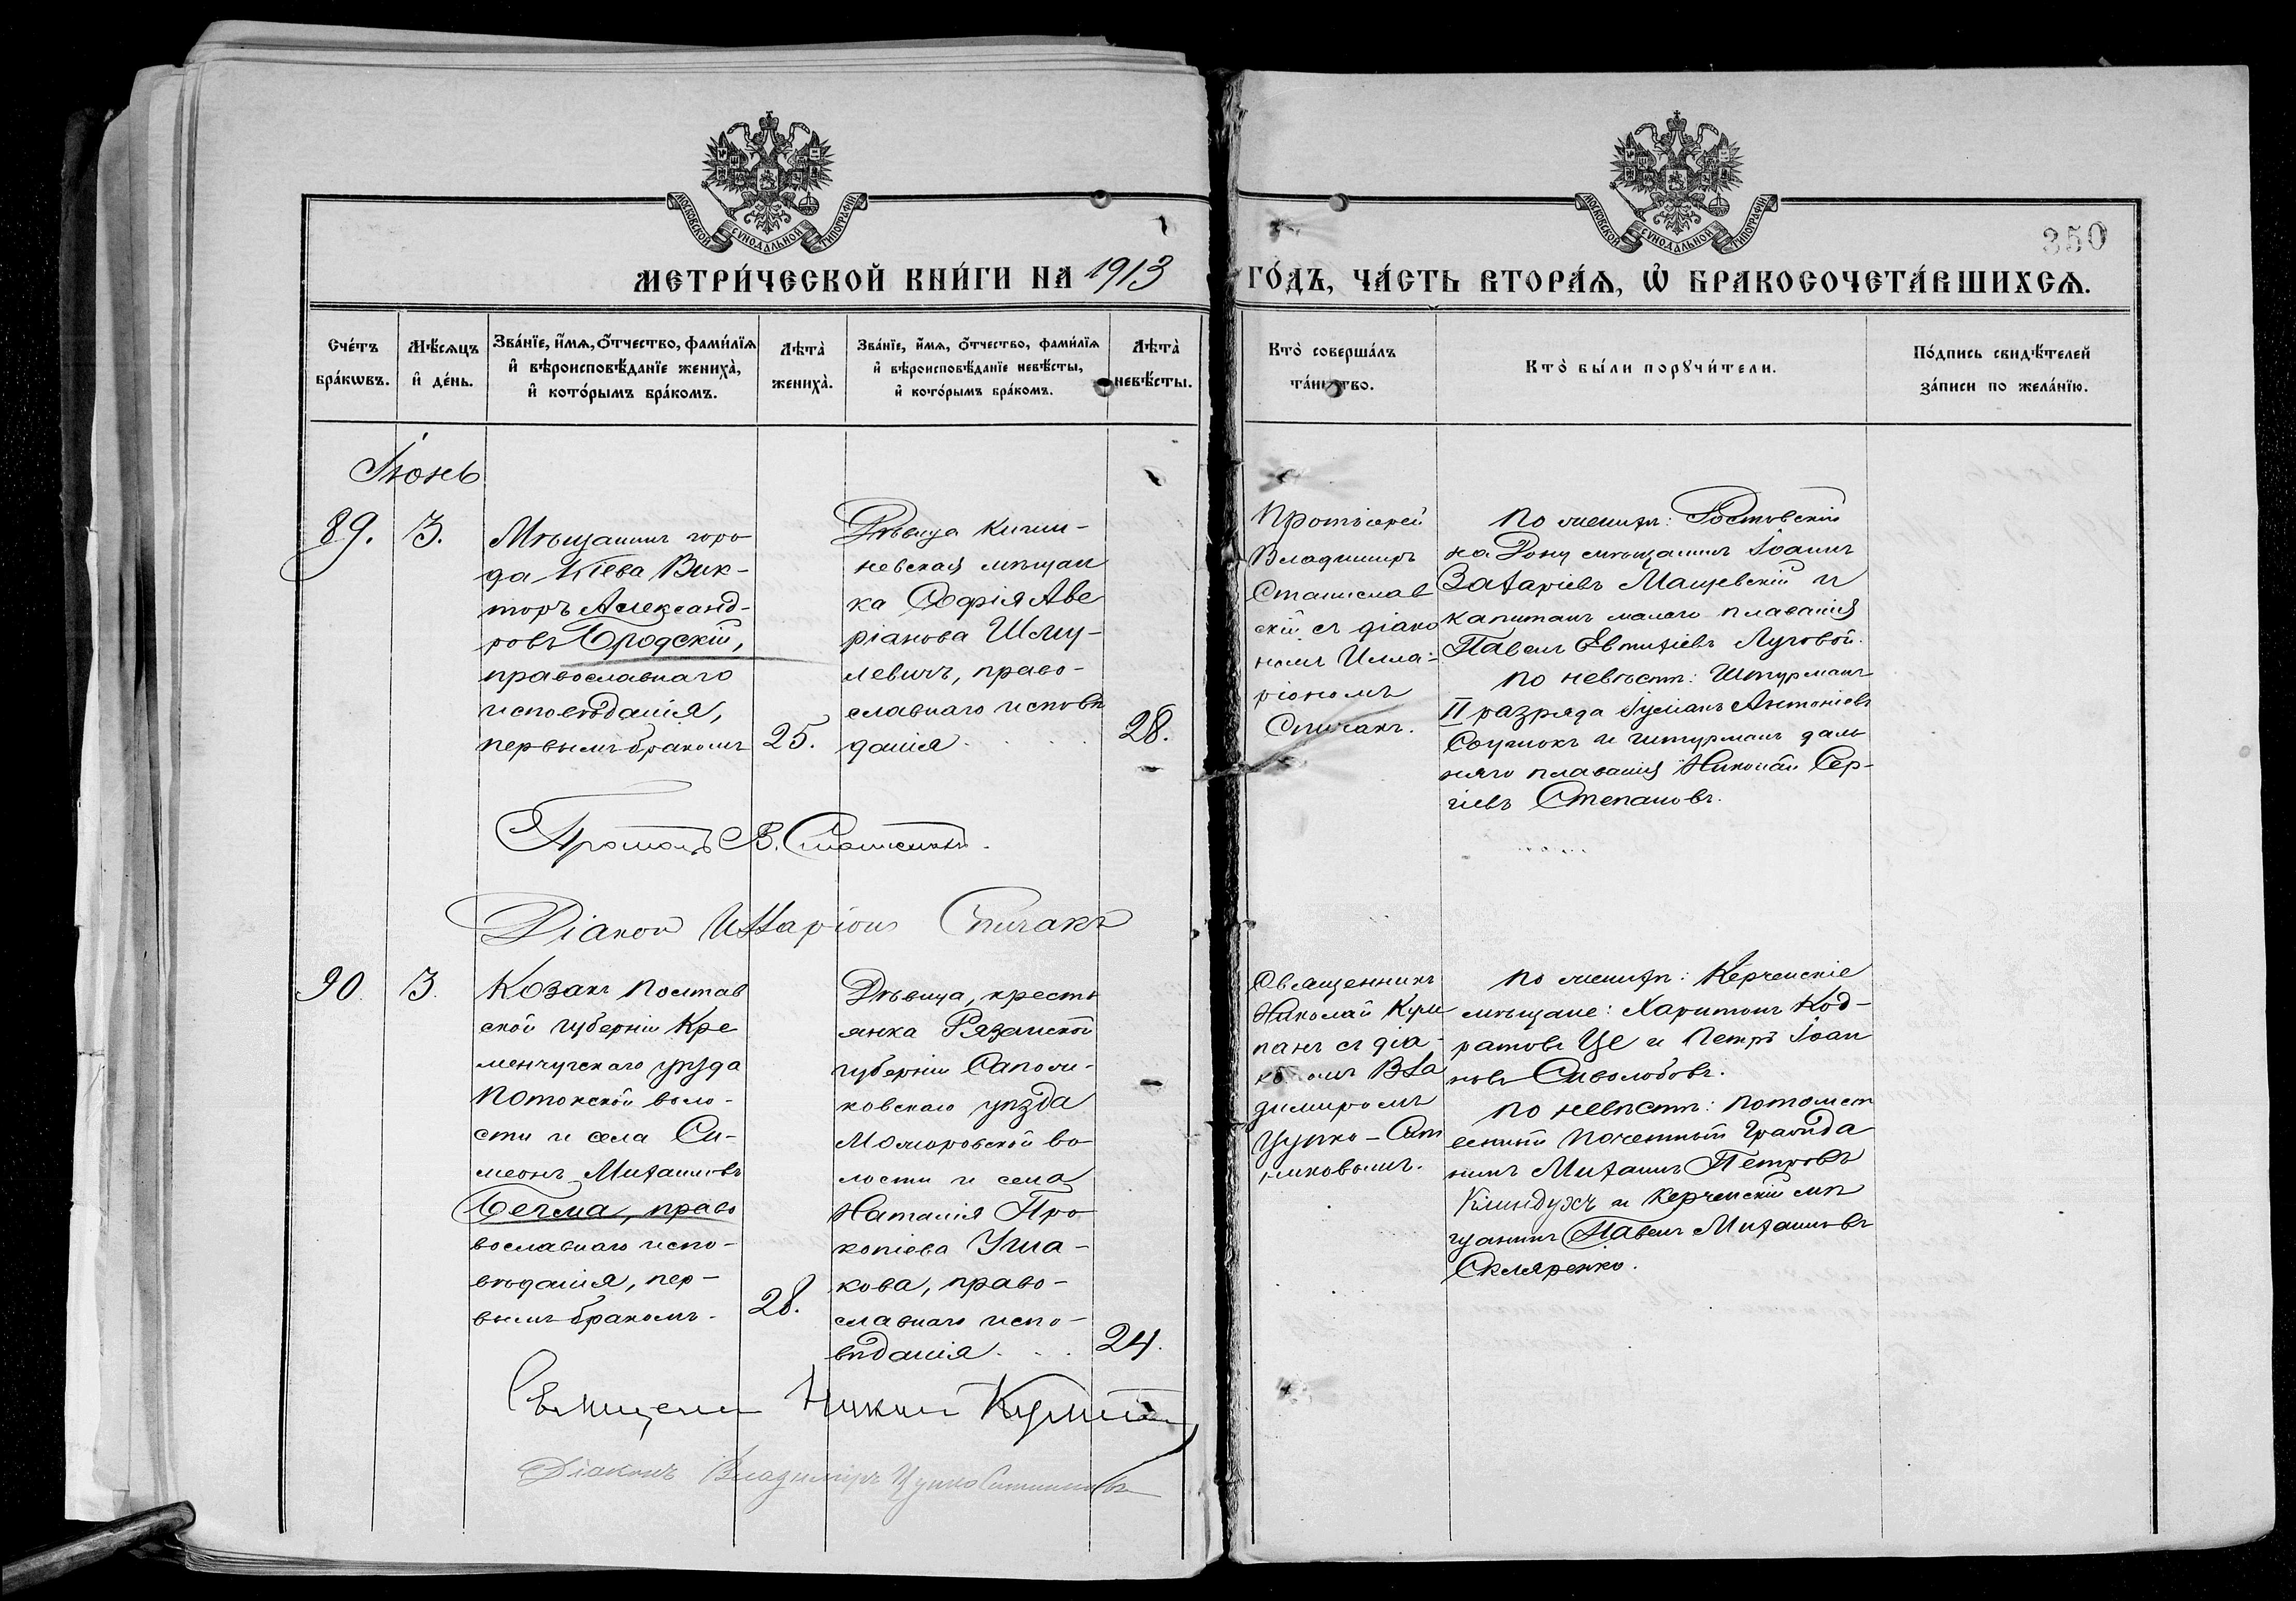 МОСКОВСКОЙ СѴНОДАЛЬНОЙ ТИПОГРАФІИ
МОСКОВСКОЙ СѴНОДАЛЬНОЙ ТИПОГРАФІИ
350
МЕТРИ́ЧЕСКОЙ КНИ́ГИ НА 1913 ГО́ДЪ, ЧА́СТЬ ВТОРА́Ѧ, Ѡ БРАКОСОЧЕТА́ВШИХСѦ.
Сче́тъ бра́кѡвъ.
Мѣ́сѧцъ и де́нь.
Зва́нїе, и́мѧ, ѻ́тчество, фами́лїѧ
и вѣроисповѣ́данїе жениха̀,
и кото́рымъ бра́комъ.
Лѣта̀ жениха̀.
Зва́нїе, и́мѧ, ѻ́тчество, фами́лїѧ
и вѣроисповѣ́данїе невѣ́сты,
и кото́рымъ бра́комъ.
Лѣта̀ невѣ́сты.
Кто̀ соверша́лъ та́инство.
Кто̀ бы́ли порꙋчи́тели.
По́дпись свидѣ́телей
за́писи по жела́нїю.
Іюнь
89.
3.
Мѣщанинъ горо-
да Кіева Вик-
торъ Александ-
ровъ Бродскій,
православнаго
исповѣданія,
первымъ бракомъ
25.
Дѣвица Киши-
невская мѣщан
ка Софія Аве
ріанова Шму-
левичъ, право-
славнаго исповѣ
данія
28.
Протоіерей
Владиміръ
Станислав
скій съ діако
номъ Илла-
ріономъ
Спичакъ.
По женихѣ: Ростовскій
на Дону мѣщанинъ Іоаннъ
Захаріевъ Мащевскій и
капитанъ малаго плаванія
Павелъ Евтихіевъ Луговой.
По невѣстѣ: Штурманъ
II разряда Іуліанъ Антоніевъ
и штурманъ даль
няго плаванія Николай Сер-
гіевъ Степановъ.
Діакон Илларіонъ Спичакъ
90.
3.
Козакъ Полтав
ской губерніи Кре
менчугскаго уѣзда
Потокской воло-
сти и села Си-
меонъ Михаиловъ
Бечма, право
вославнаго испо-
вѣданія, пер-
вымъ бракомъ.
28.
Дѣвица, кресть
янка Рязанской
губерніи Сапож-
ковскаго уѣзда
Можаровской во
лости и села
Наталія Про
копіева Ушa-
кова, право-
славнаго испо-
вѣданія
24.
Священникъ
Николай Кум
панъ съ діа-
кономъ Вла
диміромъ
Цупко-Сит
никовымъ.
По женихѣ: Керченскіе
мѣщане: Харитонъ Код-
ратовъ Це и Петръ Іоан
новъ Сиволобовъ.
По невѣстѣ: потомст
венный почетный гражда
нинъ Михаилъ Петровъ
Клиндухъ и керченскій мѣ
щанинъ Павелъ Михаиловъ
Скляренко.
Діаконъ Владиміръ Цупко Ситниковъ